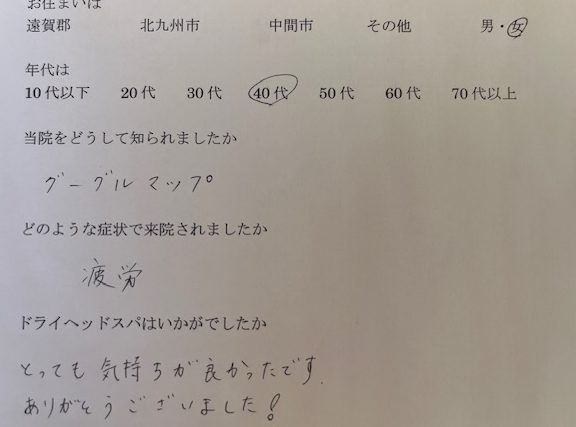 お住まいは
遠賀郡 北九州市 中間市 その他 男・女
年代は
10代以下 20代 30代 40代 50代 60代 70代以上
当院をどうして知られましたか
グーグルマップ
どのような症状で来院されましたか
疲労
ドライヘッドスパはいかがでしたか
とっても気持ちが良かったです.
ありがとうございました!